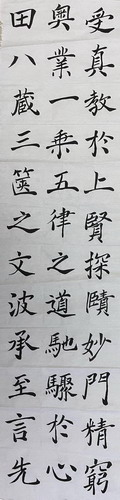 受真教於上賢探賾妙門精窮
奧業一乘五律之道馳驟於心
田八藏三篋之文波承至言先